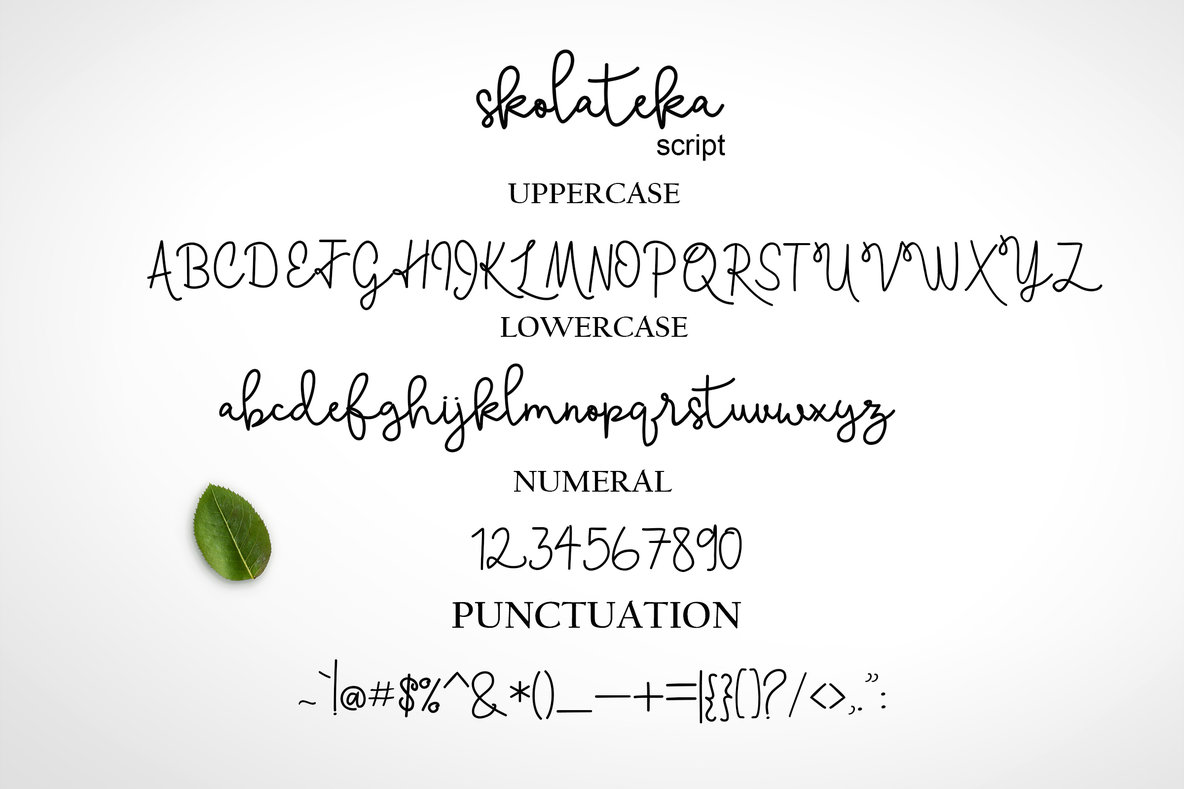 skolateka
script
UPPERCASE
ABCDEFGHIJKLMNOPQRSTUVWXYZ
LOWERCASE
abcdefghijklmnopqrstuvwxyz
NUMERAL
1234567890
PUNCTUATION
~`!@#$%^&*()_—+=|{}[]?/<>,.”: